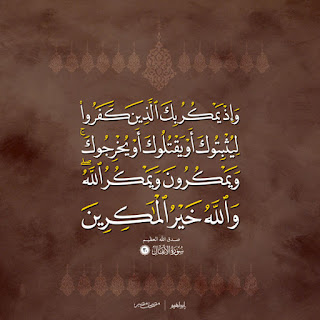 وَإِذْ يَمْكُرُ بِكَ ٱلَّذِينَ كَفَرُوا۟
لِيُثْبِتُوكَ أَوْ يَقْتُلُوكَ أَوْ يُخْرِجُوكَ ۚ
وَيَمْكُرُونَ وَيَمْكُرُ ٱللَّهُ ۖ
وَٱللَّهُ خَيْرُ ٱلْمَـٰكِرِينَ
صدق الله العظيم
سورة الأنفال ٣٠